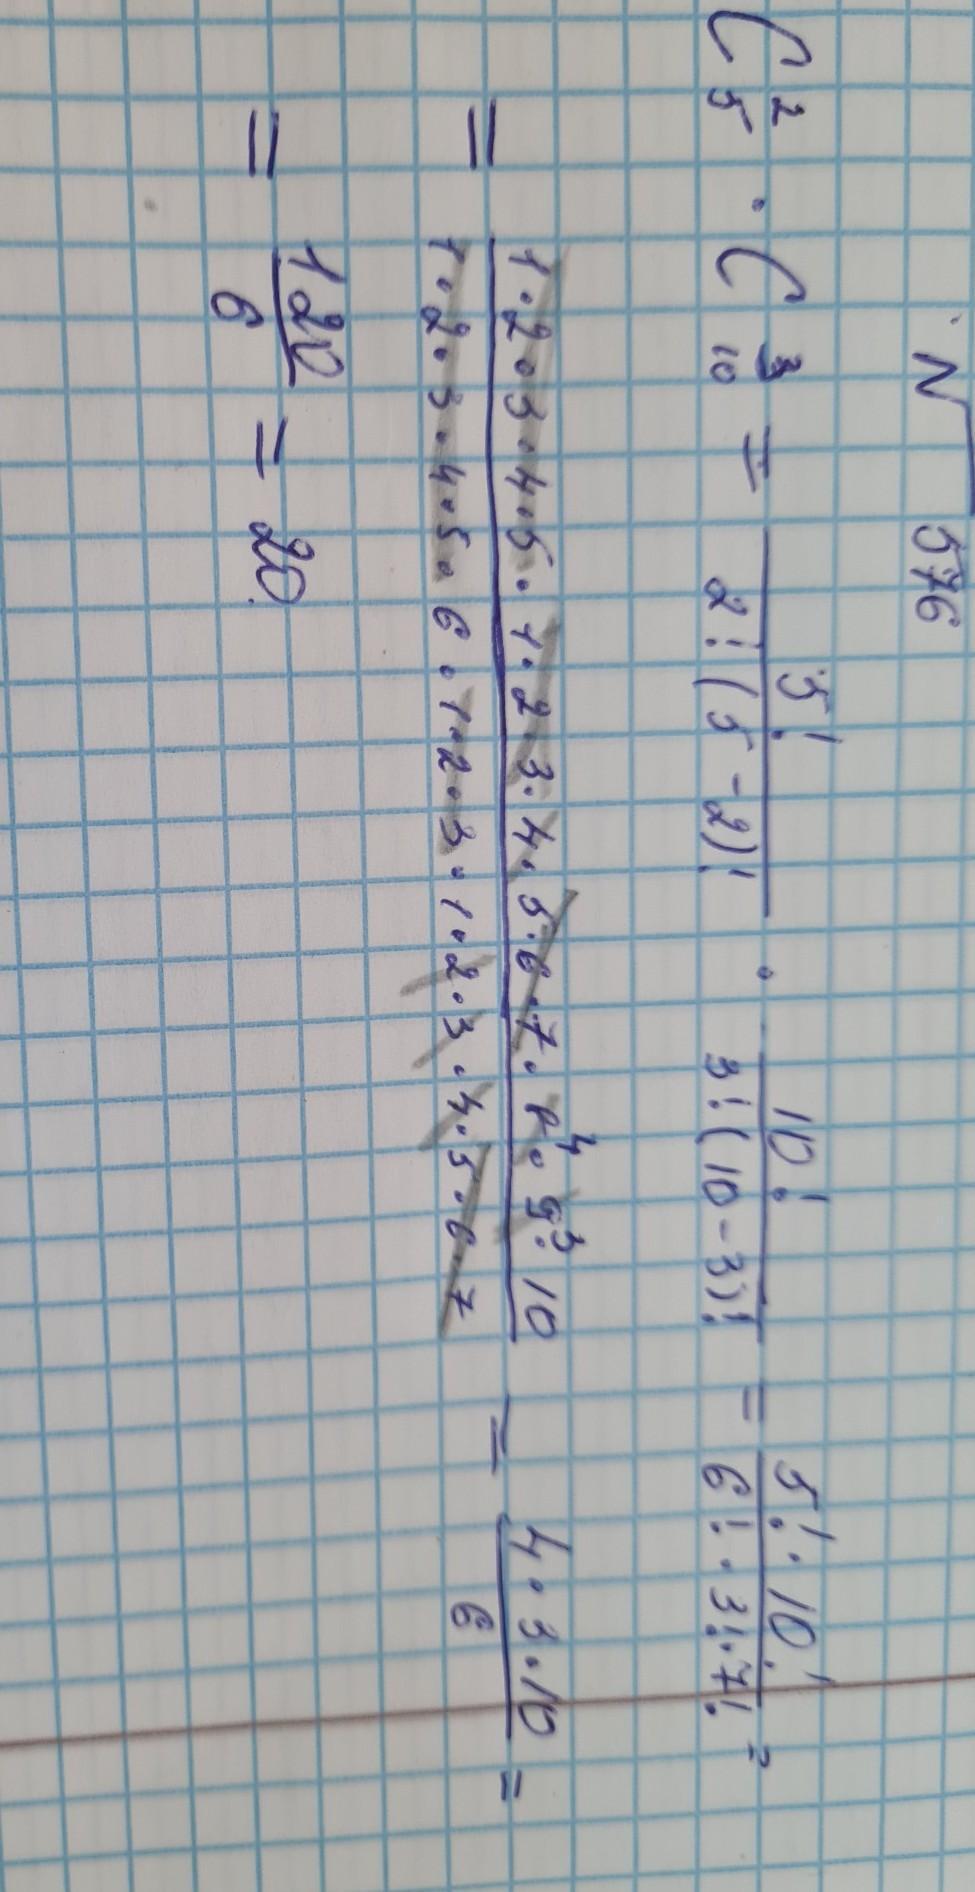 N 576
C₅² · C₁₀³ = 5! / 2!(5-2)! · 10! / 3!(10-3)! = 5! · 10! / 6! · 3! · 7! =
= 1·2·3·4·5·1·2·3·4·5·6·7·8⁴·9³·10 / 1·2·3·4·5·6·1·2·3·1·2·3·4·5·6·7 = 4·3·10 / 6 =
= 120 / 6 = 20